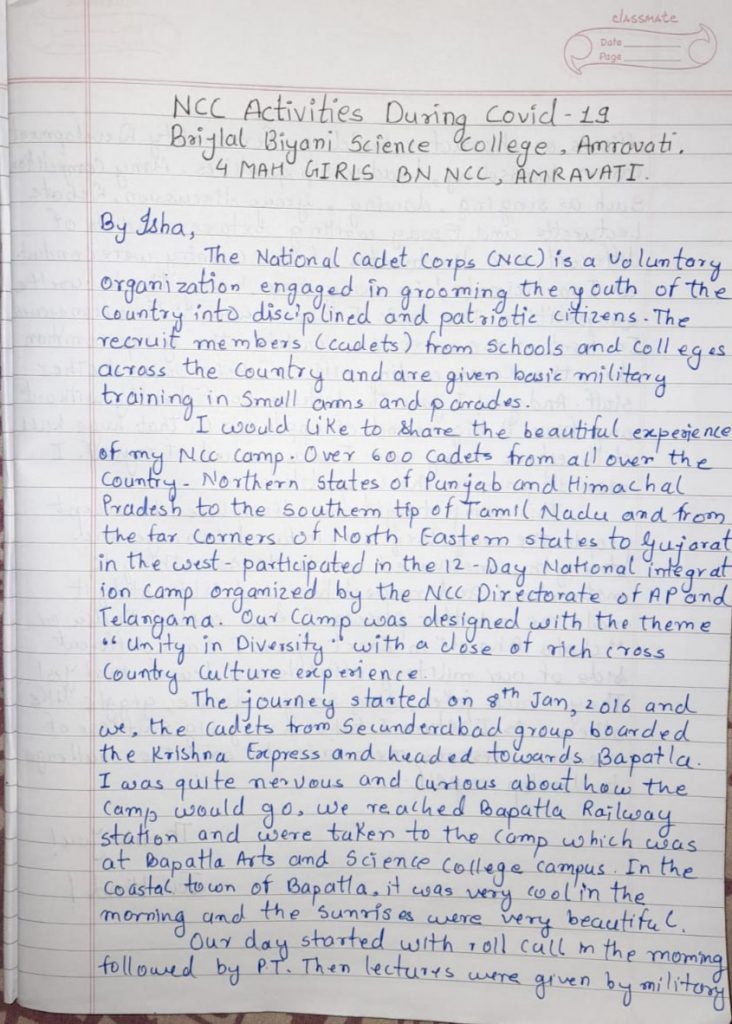 classmate
Date
Page
NCC Activities During Covid-19
Brijlal Biyani Science College, Amravati.
4 MAH GIRLS BN NCC, AMRAVATI.
By Isha,
The National Cadet Corps (NCC) is a Voluntory
Organization engaged in grooming the youth of the
Country into disciplined and patriotic citizens. The
recruit members (cadets) from Schools and Colleges
across the Country and are given basic military
training in Small arms and parades.
I would like to share the beautiful experience
of my NCC Camp. Over 600 Cadets from all over the
Country - Northern States of Punjab and Himachal
Pradesh to the Southern tip of Tamil Nadu and from
the far Corners of North Eastern states to Gujarat
in the west - participated in the 12-Day National integrat
ion Camp organized by the NCC Directorate of AP and
Telangana. Our Camp was designed with the theme
"Unity in Diversity" with a dose of rich cross
Country Culture experience.
The journey started on 8th Jan, 2016 and
we, the Cadets from Secunderabad group boarded
the Krishna Express and headed towards Bapatla.
I was quite nervous and Curious about how the
Camp would go, we reached Bapatla Railway
station and were taken to the Camp which was
at Bapatla Arts and Science College Campus. In the
Coastal town of Bapatla, it was very cool in the
morning and the Sunrises were very beautiful.
Our day started with roll call in the morning
followed by P.T. Then lectures were given by military